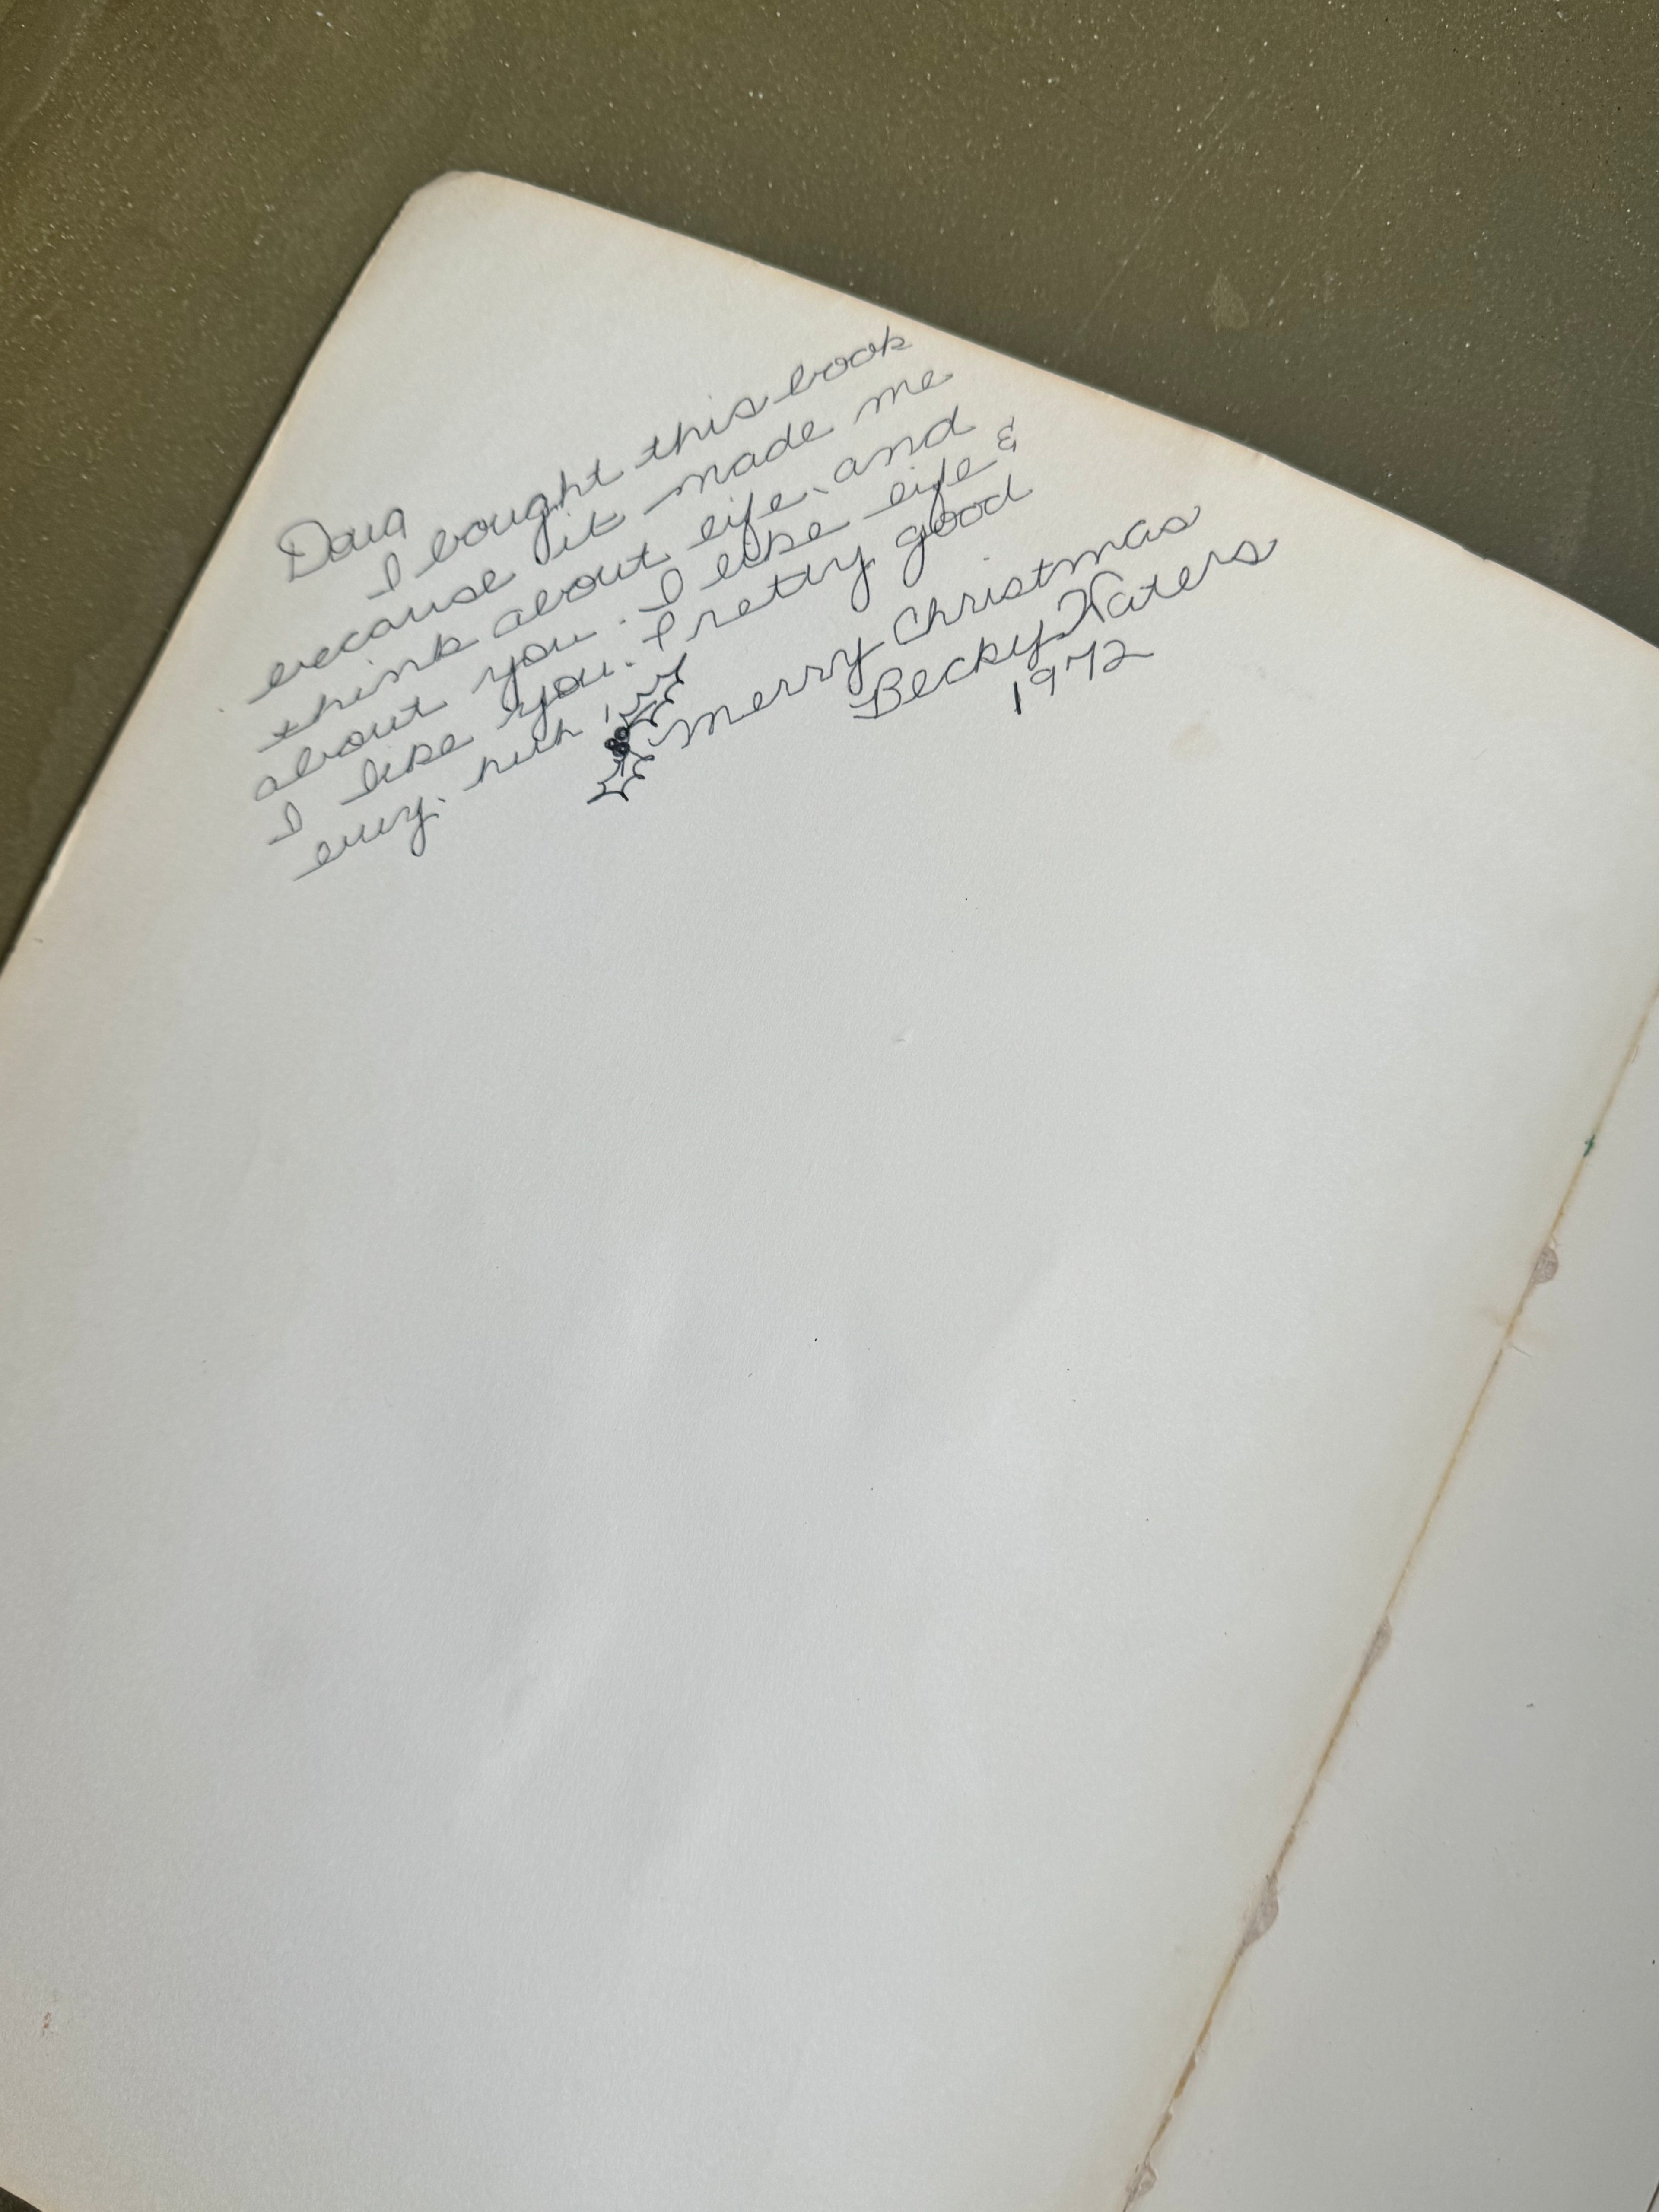 Doug
I bought this book
because it made me
think about life, and
about you. I like life &
I like you. Pretty good
buy. huh!
Merry Christmas
Becky Katers
1972